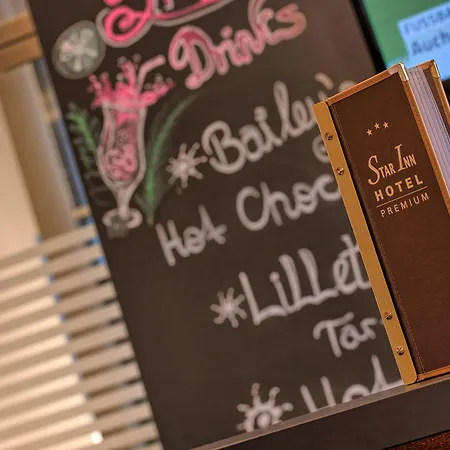 Drinks
Bailey's
Hot Choc
Lillet
Hot
FUSSBA
Auch
STAR INN
HOTEL
PREMIUM